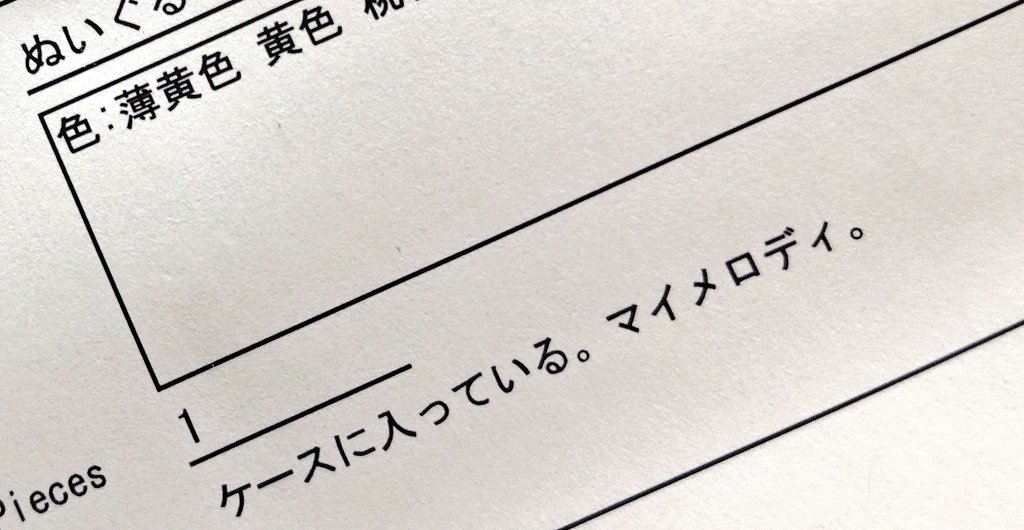 ぬいぐる
色:薄黄色 黄色 桃
1
Pieces
ケースに入っている。マイメロディ。